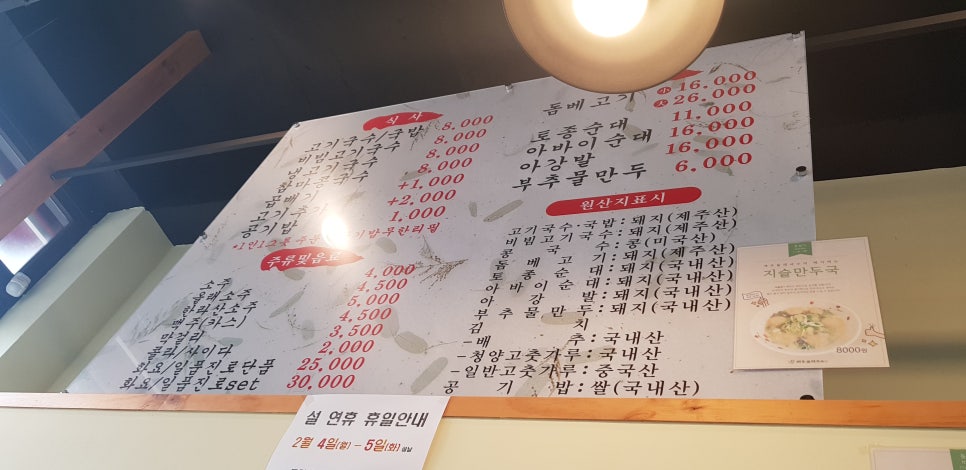 식사
고기국수/국밥 8.000
비빔고기국수 8.000
냉고기국수 8.000
함마콩국수 8.000
곱배기 +1.000
고기추가 +2.000
공기밥 1,000
주류및음료
소주 4,000
올래소주 4.500
한라산소주 5,000
맥주(카스) 4.500
막걸리 3,500
콜라/사이다 2,000
화요/일품진로단품 25,000
화요/일품진로set 30,000
돔베고기 小 16.000
大 26.000
토종순대 11.000
아바이순대 16.000
아강발 16.000
부추물만두 6.000
원산지표시
고기국수·국밥:돼지(제주산)
비빔고기국수:돼지(제주산)
콩국수:콩(미국산)
돔베고기:돼지(제주산)
토종순대:돼지(국내산)
아바이순대:돼지(국내산)
아강발:돼지(국내산)
부추물만두:돼지(국내산)
김치
-배추:국내산
-청양고춧가루:국내산
-일반고춧가루:중국산
공기밥:쌀(국내산)
지슬만두국
8000원
설 연휴 휴일안내
2월 4일(월) - 5일(화)